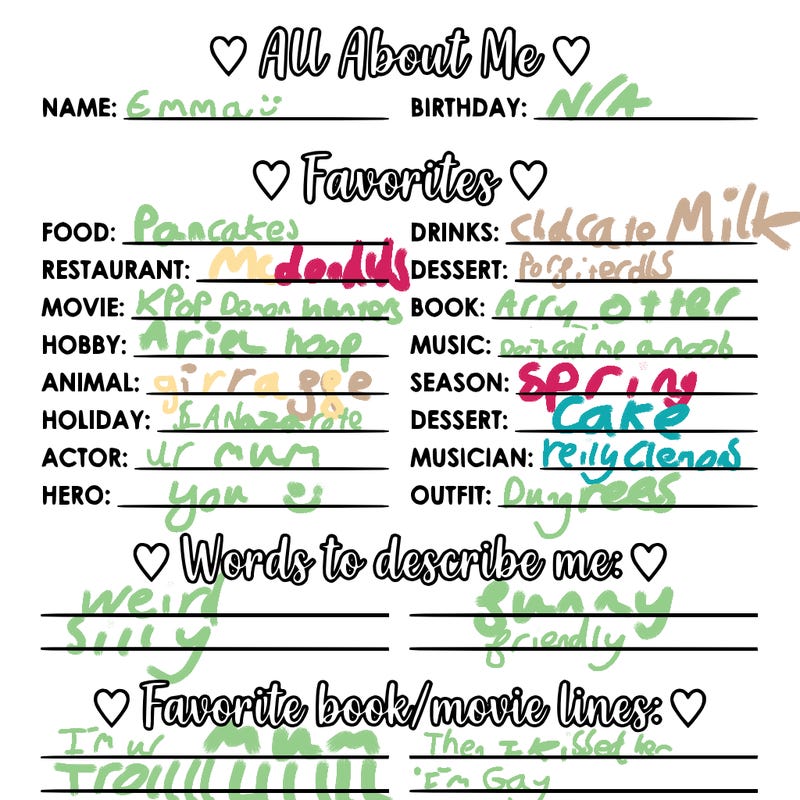 All About Me
NAME: Emma BIRTHDAY: N/A
Favorites
FOOD: Pancakes DRINKS: Milk
RESTAURANT: DESSERT:
MOVIE: KPOP Demon hunters BOOK: Arry otter
HOBBY: Ariel hoop MUSIC: Don't call me a noob
ANIMAL: SEASON: Spring
HOLIDAY: DESSERT: Cake
ACTOR: ur mum MUSICIAN:
HERO: you OUTFIT: Dungrees
Words to describe me:
weird funny
silly friendly
Favorite book/movie lines:
I'm ur mum Then I kissed her
I'm Gay